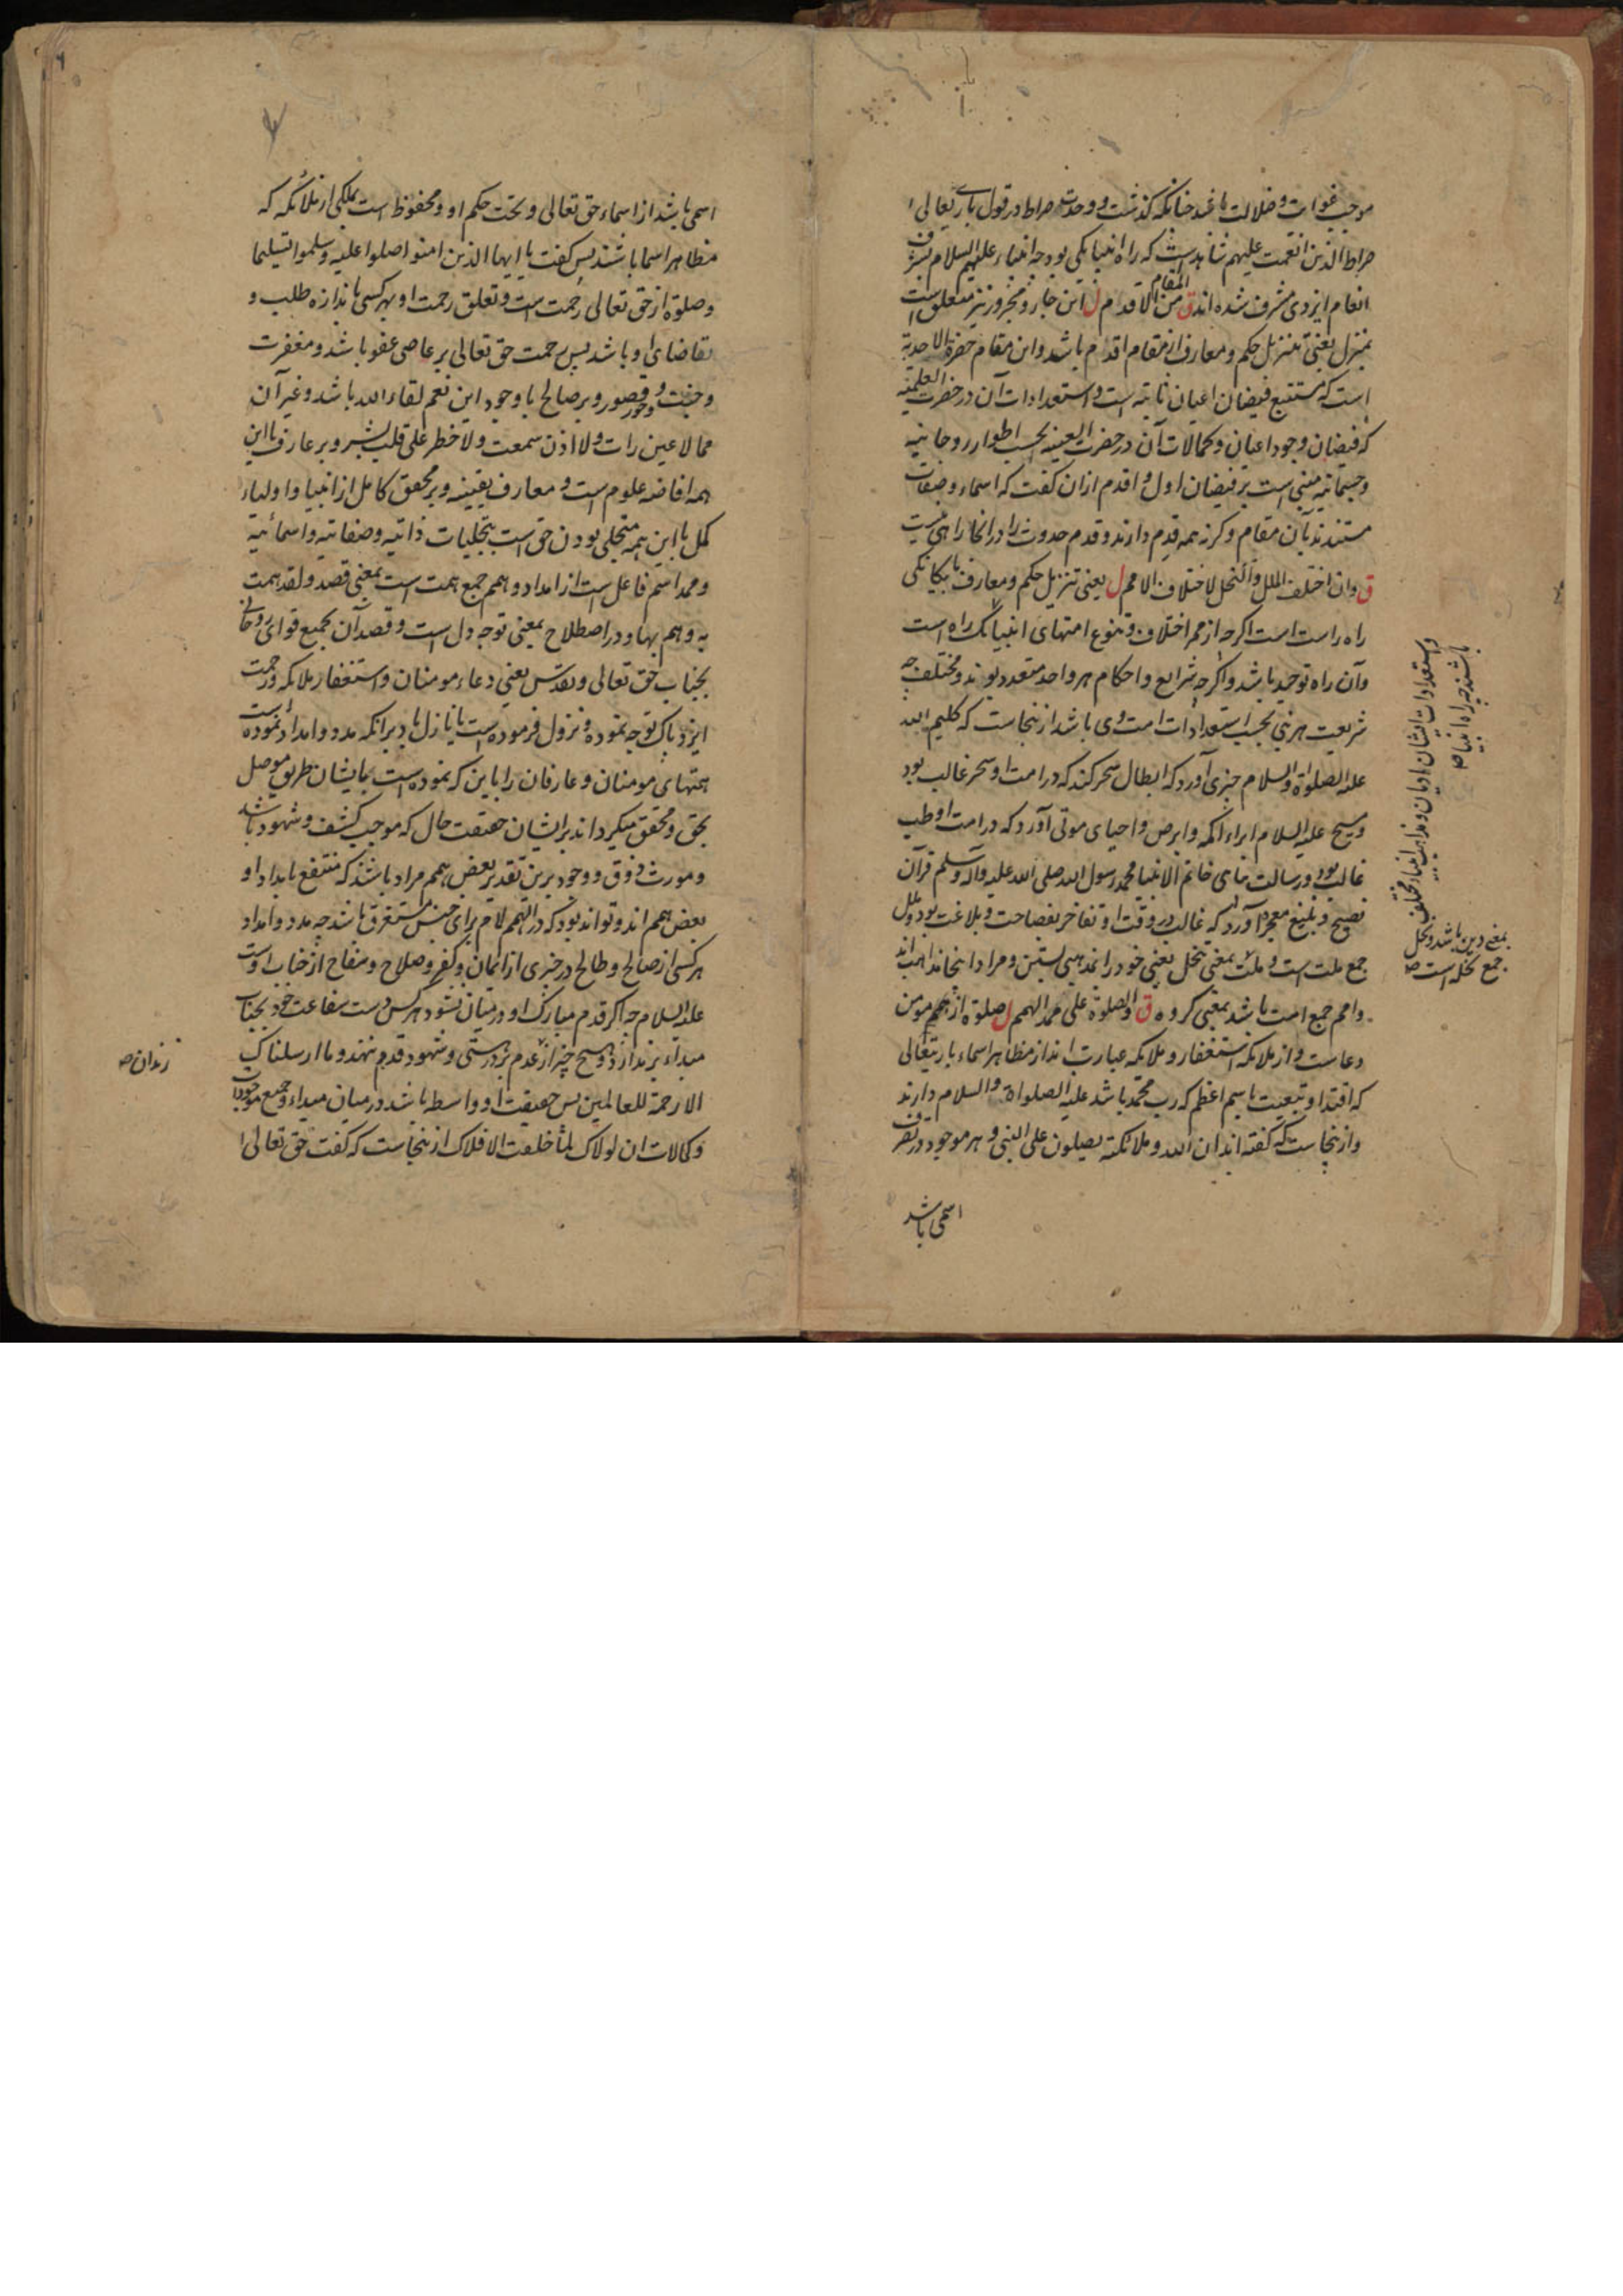 موجب غوایت و ضلالت باشد چنانکه گذشت و وحدت صراط در قول باریتعالی
صراط الذین انعمت علیهم شاهدست که راه انبیا یکی بود چه انبیاء علیهم السلام بشرف
انعام ایزدی مشرف شده اند ق من المقام الاقدم ل این جار و مجرور نیز متعلق است
بمنزل یعنی تنزیل حکم و معارف از مقام اقدم باشد و این مقام حضرة الاحدیة
است که مستتبع فیضان اعیان ثابته است و استعدادات آن در حضرت العلمیه
که فیضان وجود اعیان و کمالات آن در حضرت العینیه بحسب اطوار روحانیه
و جسمانیه مبنی است بر فیضان اول و اقدم ازان گفت که اسماء و صفات
مستندند بآن مقام وگرنه همه قدیم دارند و قدم حدوث را در انجا راهی نیست
ق وان اختلف الملل والنحل لاختلاف الامم ل یعنی تنزیل حکم و معارف با یکانکی
راه راست است اگرچه از ممر اختلاف و تنوع امتهای انبیا یک راه است
وآن راه توحید باشد و اگرچه شرایع و احکام هر واحد متعدد بوند و مختلف چه
شریعت هر نبی بحسب استعدادات امت وی باشد ازینجاست که کلیم الله
علیه الصلواة والسلام چیزی آورد که ابطال سحر کند که در امت او سحر غالب بود
و مسیح علیه السلام ابراء اکمه و ابرص و احیای موتی آورد که در امت او طب
غالب بود و رسالت مای خاتم الانبیا محمد رسول الله صلی الله علیه وآله وسلم قرآن
فصیح و بلیغ معجز آورد که غالب در وقت او تفاخر بفصاحت و بلاغت بود و ملل
جمع ملت است و ملت بمعنی نحل یعنی خود را بمذهبی بستن و مراد اینجا مذاهب اند
و امم جمع امت باشد بمعنی گروه ق والصلوة علی ممد الهمم ل صلوة از همم مومن
دعاست و از ملائکه استغفار و ملائکه عبارت اند از مظاهر اسماء باریتعالی
که اقتدا و تبعیت باسم اعظم که رب محمد باشد علیه الصلواة والسلام دارند
و ازینجاست که گفته اند ان الله و ملائکته یصلون علی النبی و هر موجود در تصرف
اسمی باشد
و استعدادات ایشان ادیان و مذاهب انبیاء مختلف
باشند چه راه انبیا صه
بمعنی دین باشد و نحل
جمع نحله است صه
اسمی باشد از اسماء حق تعالی و تحت حکم او و محفوظ است بملکی از ملائکه که
مظاهر اسما باشند پس گفت یا ایها الذین امنوا صلوا علیه وسلموا تسلیما
و صلوة از حق تعالی رحمت است و تعلق رحمت او بهر کسی باندازه طلب و
تقاضای او باشد پس رحمت حق تعالی بر عاصی عفو باشد و مغفرت
و جنت و حور و قصور و بر صالح با وجود این نعم لقاء الله باشد و غیر آن
مما لا عین رات ولا اذن سمعت ولا خطر علی قلب بشر و بر عارف با این
همه افاضه علوم است و معارف یقینیه و بر محقق کامل از انبیا و اولیاء
کمل با این همه متجلی بودن حق است بتجلیات ذاتیه و صفاتیه و اسمائیه
و ممد اسم فاعل است از امداد و همم جمع همت است بمعنی قصد و لقد همت
به و هم بها و در اصطلاح بمعنی توجه دل است و قصد آن بجمیع قوای روحانی
بجناب حق تعالی و تقدس یعنی دعاء مومنان و استغفار ملائکه و رحمت
ایزد پاک توجه نموده و نزول فرموده است یا نازل باد برانکه مدد و امداد نموده است
همتهای مومنان و عارفان را باین که نموده است بایشان طریق موصل
بحق و محقق میگرداند بر ایشان حقیقت حال که موجب کشف و شهود باشد
و مورث ذوق و وجود برین تقدیر بعض همم مراد باشد که منتفع بامداد او
بعض همم اند و تواند بود که در الهمم لام برای جنس مستغرق باشد چه مدد و امداد
هر کسی از صالح و طالح در چیزی از ایمان و کفر و صلاح و سفاح از جناب اوست
علیه السلام چه اگر قدم مبارک او در میان نشود هر کس دست شفاعت خود بجناب
مبداء بر ندارد و هیچ چیز از عدم بر هستی و شهود قدم ننهد و ما ارسلناک
الا رحمة للعالمین پس حقیقت او واسطه باشد در میان مبداء و جمیع موجودات
و کمالات ان لولاک لما خلقت الافلاک ازینجاست که گفت حق تعالی
زندان صه